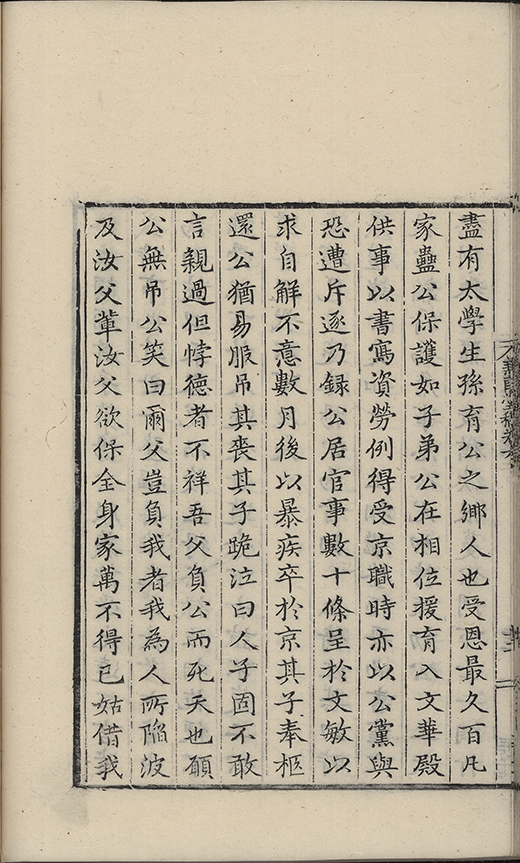 盡有太學生孫育公之鄉人也受恩最久百凡
家蠱公保護如子弟公在相位援育入文華殿
供事以書寫資勞例得受京職時亦以公黨與
恐遭斥逐乃録公居官事數十條呈於文敏以
求自解不意數月後以暴疾卒於京其子奉柩
還公猶易服吊其喪其子跪泣曰人子固不敢
言親過但悖德者不祥吾父負公而死天也願
公無吊公笑曰爾父豈負我者我為人所陷波
及汝父輩汝父欲保全身家萬不得已姑借我